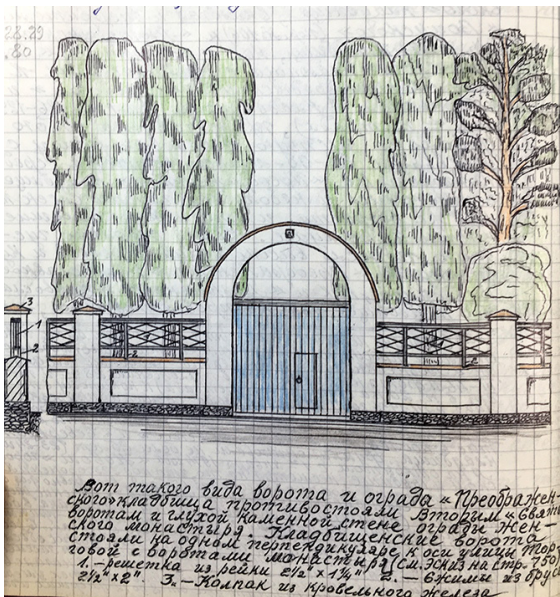 28.29
80
3
1
2
2
2
Вот такого вида ворота и ограда «Преображен-
ского» кладбища противостояли Вторым «Свят
воротам и глухой каменной стене ограды Жен-
ского монастыря. Кладбищенские ворота
стояли на одном перпендикуляре к оси улицы Тор-
говой с воротами монастыря (см. эскиз на стр. 750)
1. – решетка из рейки 2½" × 1¼" 2. – Сжимы из бру
2½" × 2". 3. – Колпак из кровельного железа